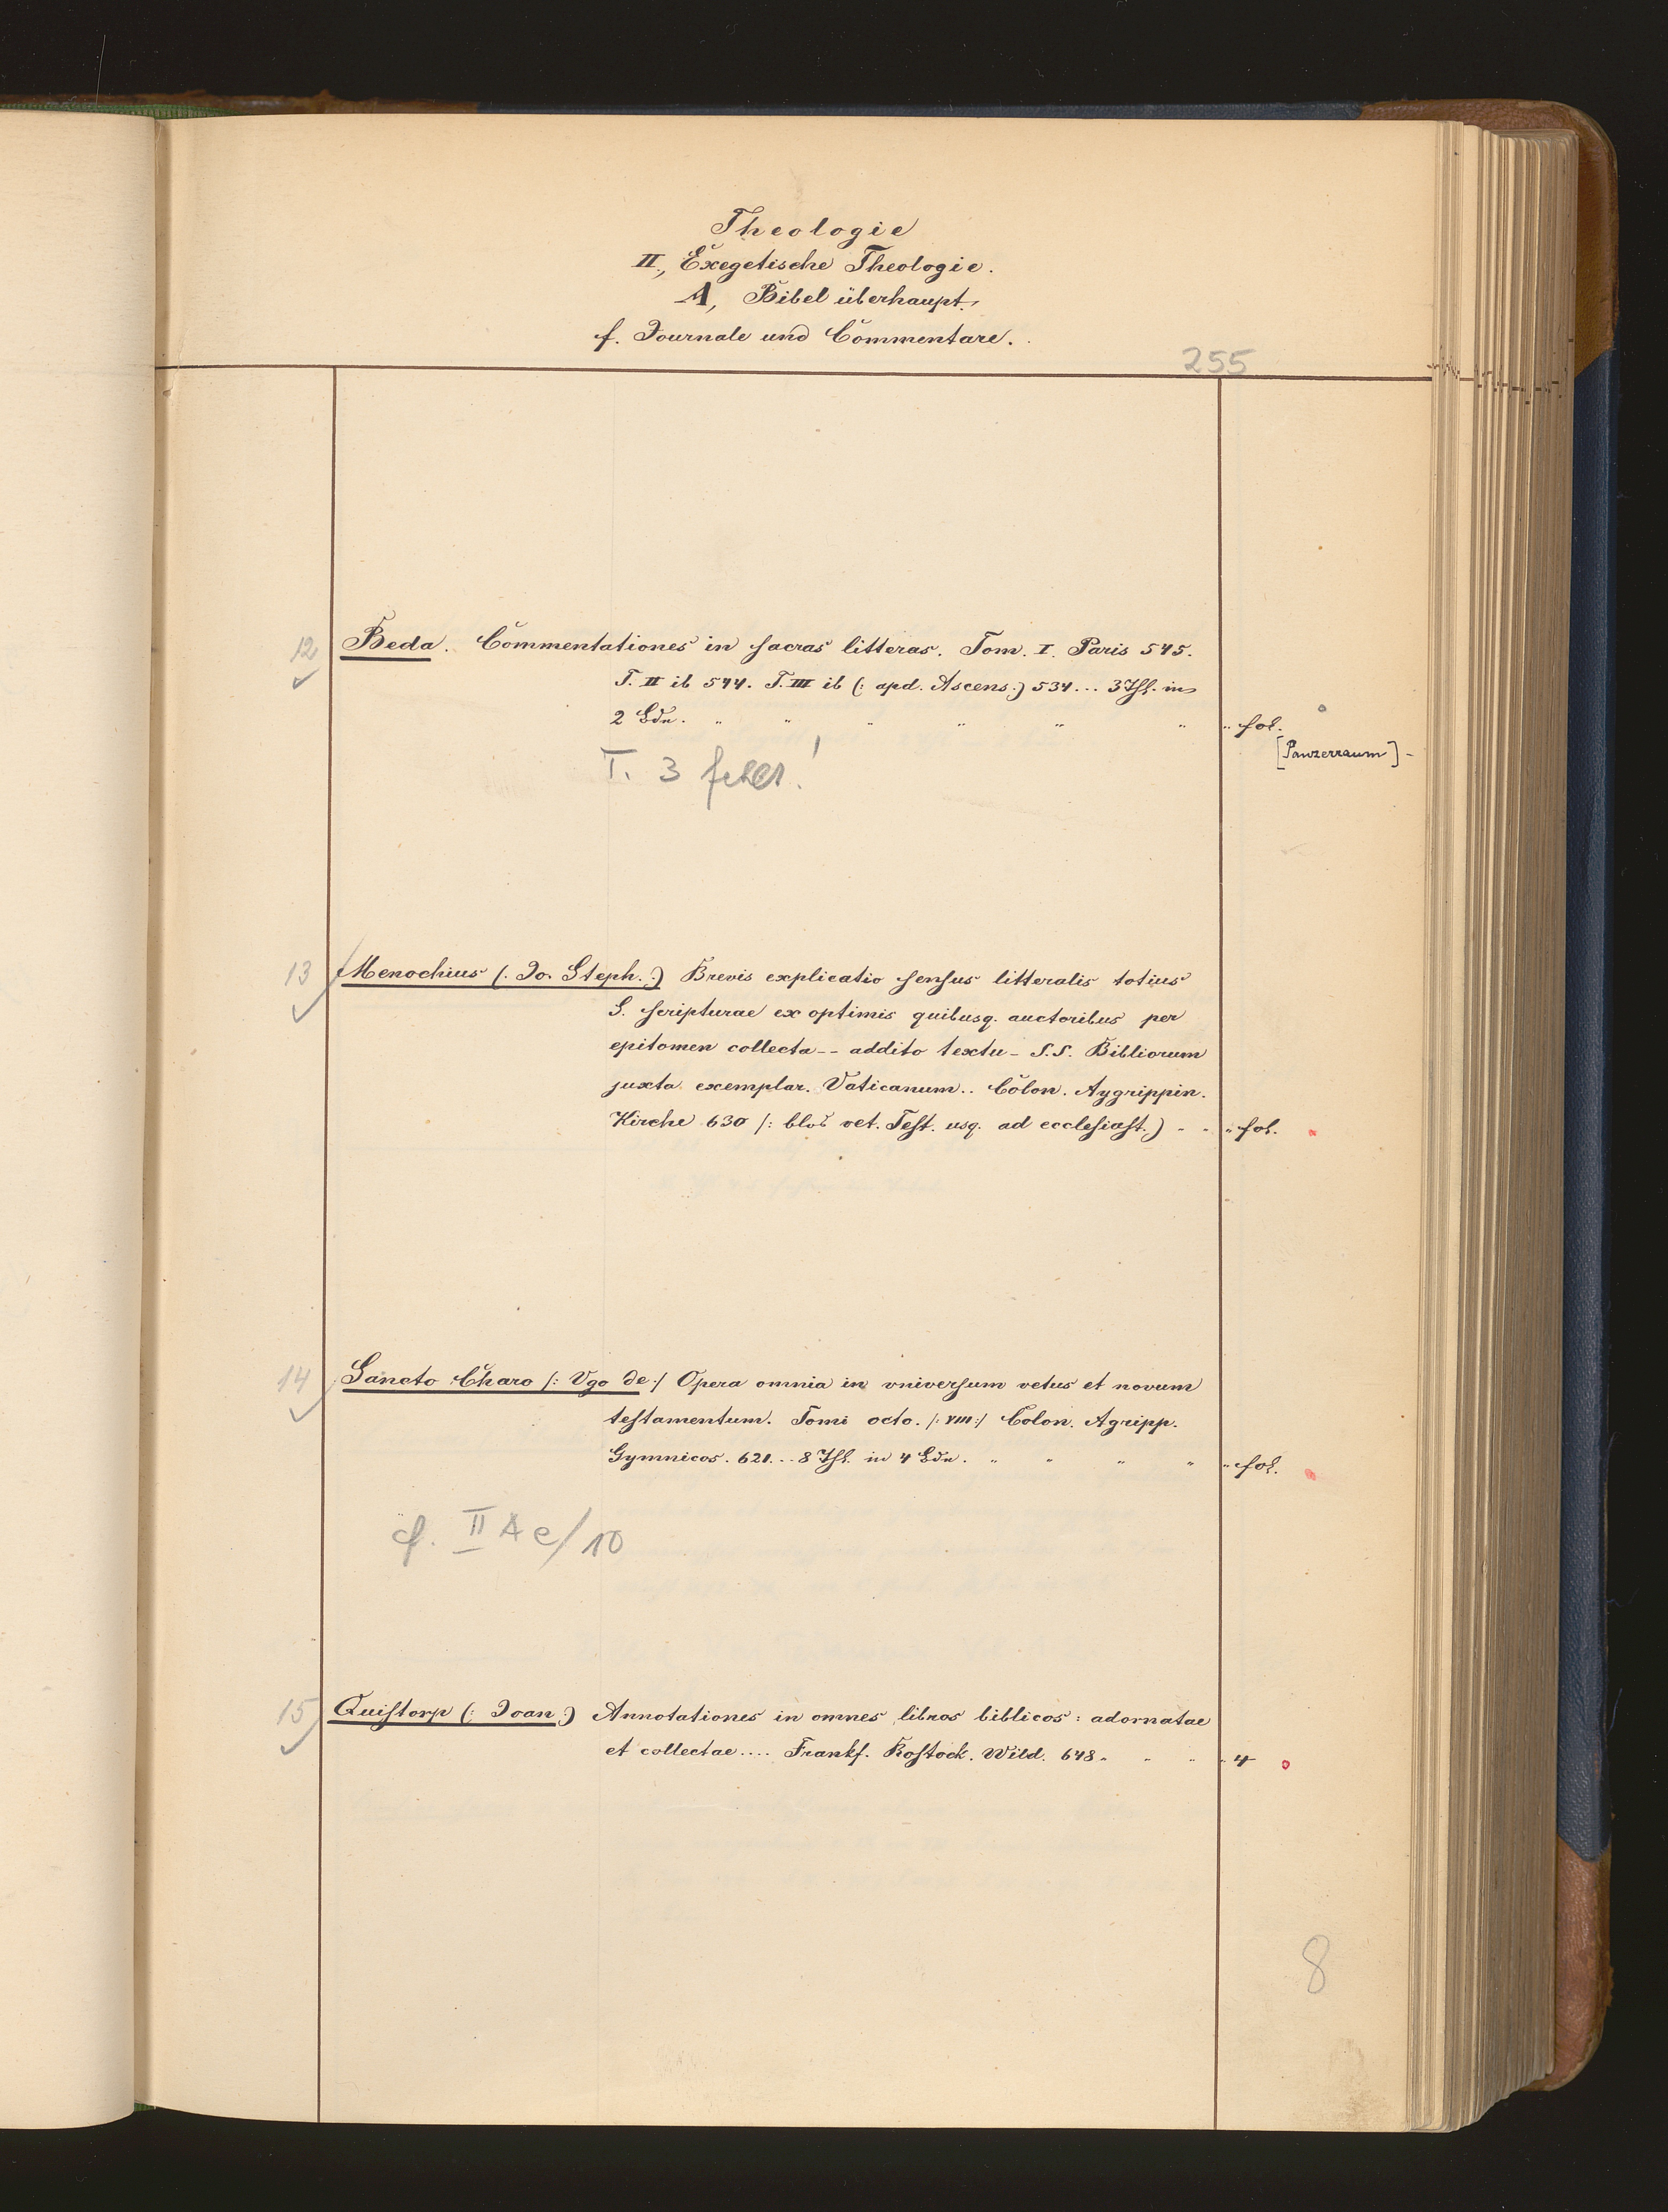 Theologie
II., Exegetische Theologie.
A, Bibel überhaupt.
f. Journale und Commentare.
255
12 Beda. Commentationes in sacras litteras. Tom. I. Paris 545.
T. II ib 544. T. III ib (: apd. Ascens:) 534... 3 Thl. in
2 Bdn. " " " " " " " fol.
[Panzerraum] -
T. 3 fehlt!
13 Menochius (. Jo. Steph. :) Brevis explicatio sensus litteralis totius
S. scripturae ex optimis quibusq. auctoribus per
epitomen collecta -- addito textu - S.S. Bibliorum
juxta exemplar. Vaticanum.. Colon. Aygrippin.
Kirche 630 /: blos vet. Test. usq. ad ecclesiast.) - - " fol.
14 Sancto Charo /: Ugo de :/ Opera omnia in vniversum vetus et novum
testamentum. Tomi octo. /: VIII :/ Colon. Agripp.
Gymnicos. 621... 8 Thl. in 4 Bdn. " " " " " fol.
cf. II A e/10
15 Quistorp (: Joan :) Annotationes in omnes libros biblicos : adornatae
et collectae.... Frankf. Rostock. Wild. 648. " " " 4
8